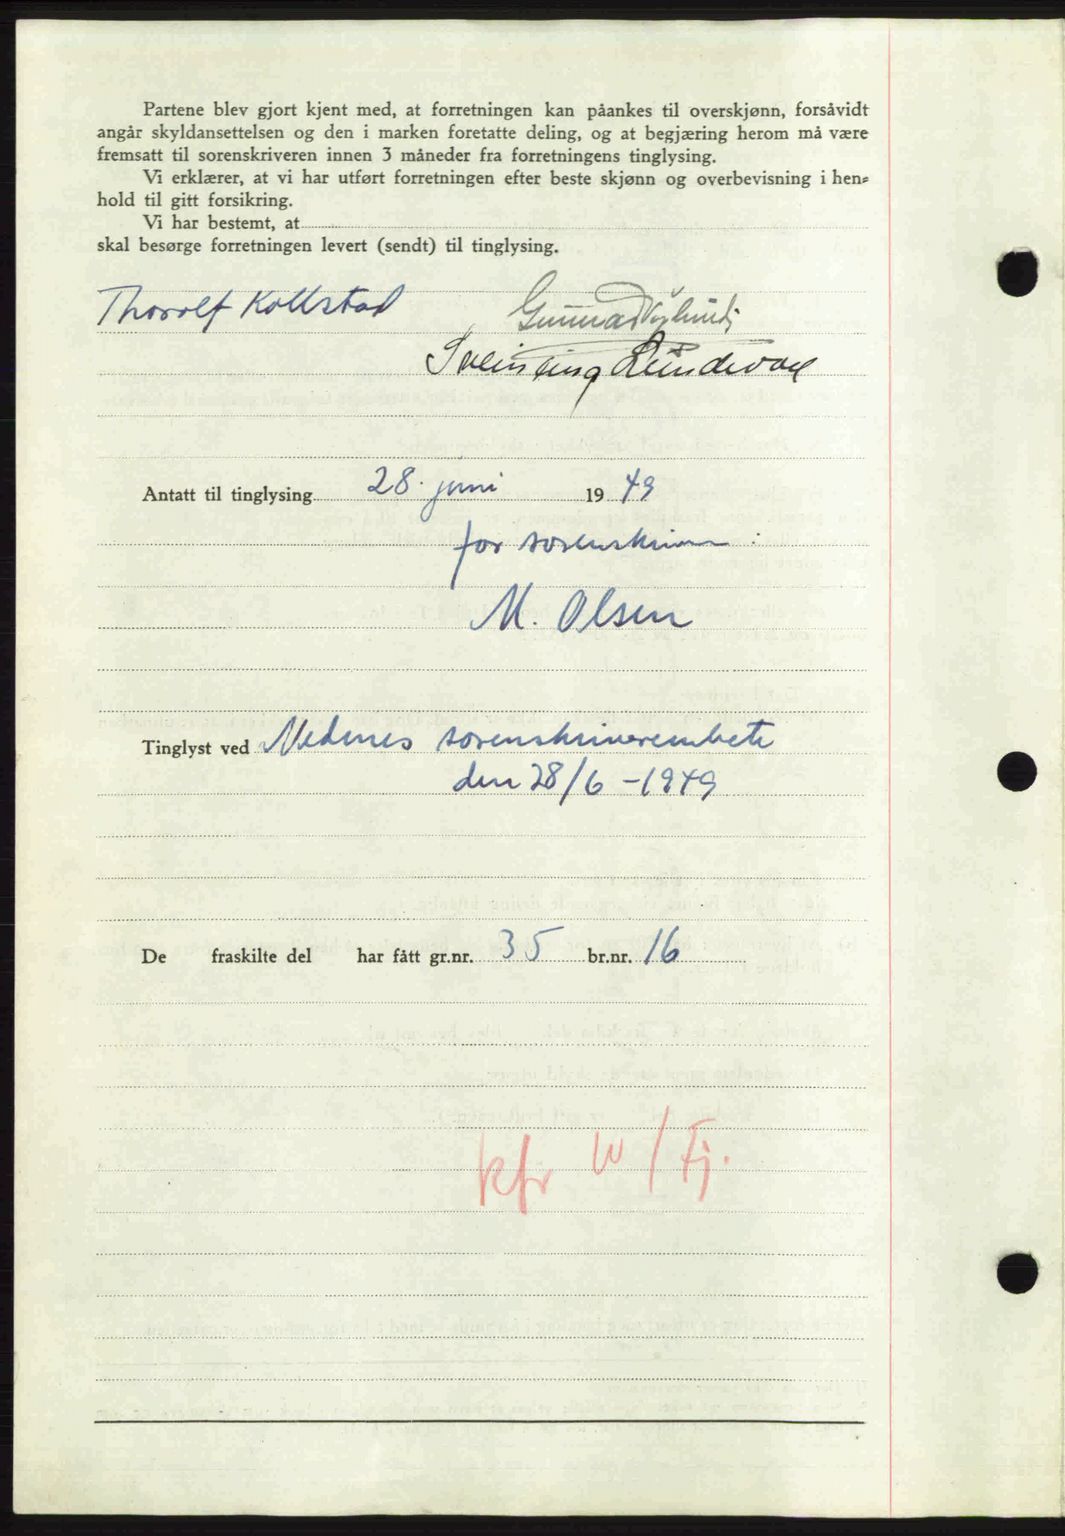 Partene blev gjort kjent med, at forretningen kan påankes til overskjønn, forsåvidt
angår skyldansettelsen og den i marken foretatte deling, og at begjæring herom må være
fremsatt til sorenskriveren innen 3 måneder fra forretningens tinglysing.
Vi erklærer, at vi har utført forretningen efter beste skjønn og overbevisning i hen-
hold til gitt forsikring.
Vi har bestemt, at
skal besørge forretningen levert (sendt) til tinglysing.
Thorolf Kollstad
Gunnar
Sveinung
Antatt til tinglysing 28. juni 1949
for sorenskriveren :
M. Olsen
Tinglyst ved Nedenes sorenskriverembete
den 28/6 - 1949
De fraskilte del har fått gr.nr. 35 br.nr. 16
kfr W / Fj.